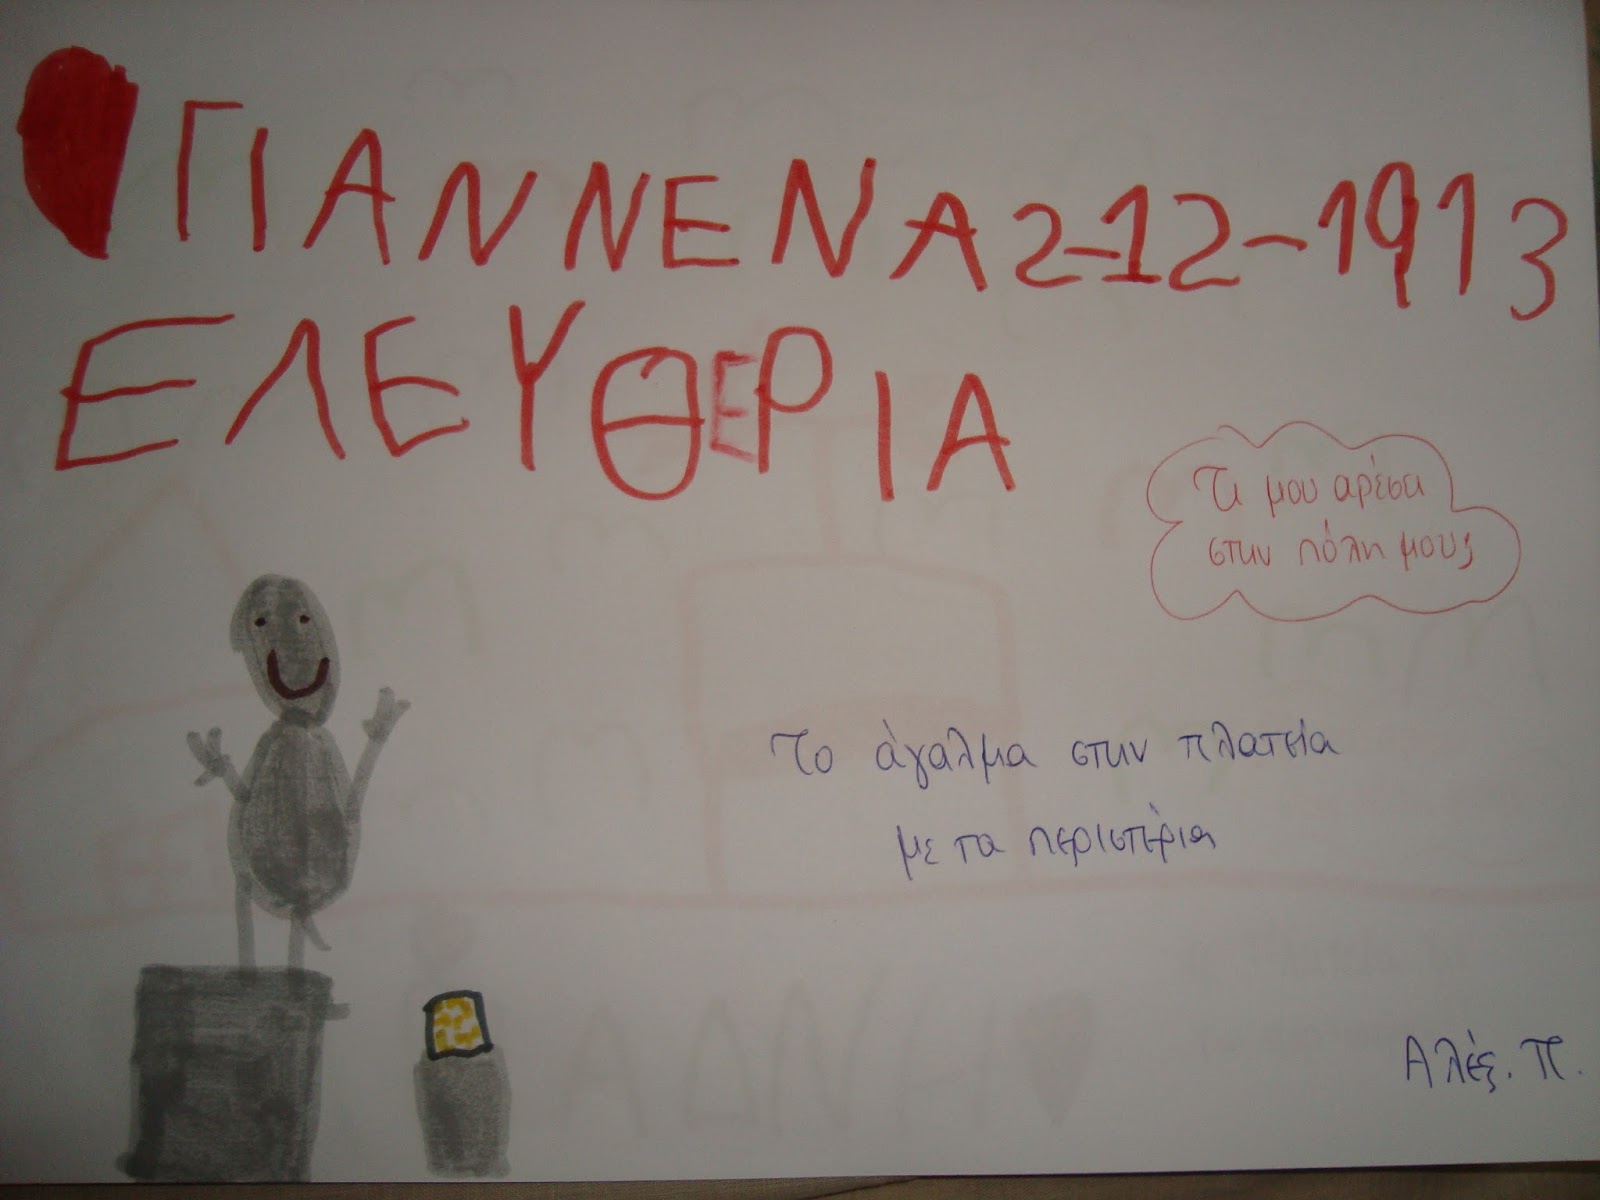 ΓΙΑΝΝΕΝΑ 2-12-1913
ΕΛΕΥΘΕΡΙΑ
Τι μου αρέσει
στην πόλη μου;
Το άγαλμα στην πλατεία
με τα περιστέρια
Αλέξ. Π.